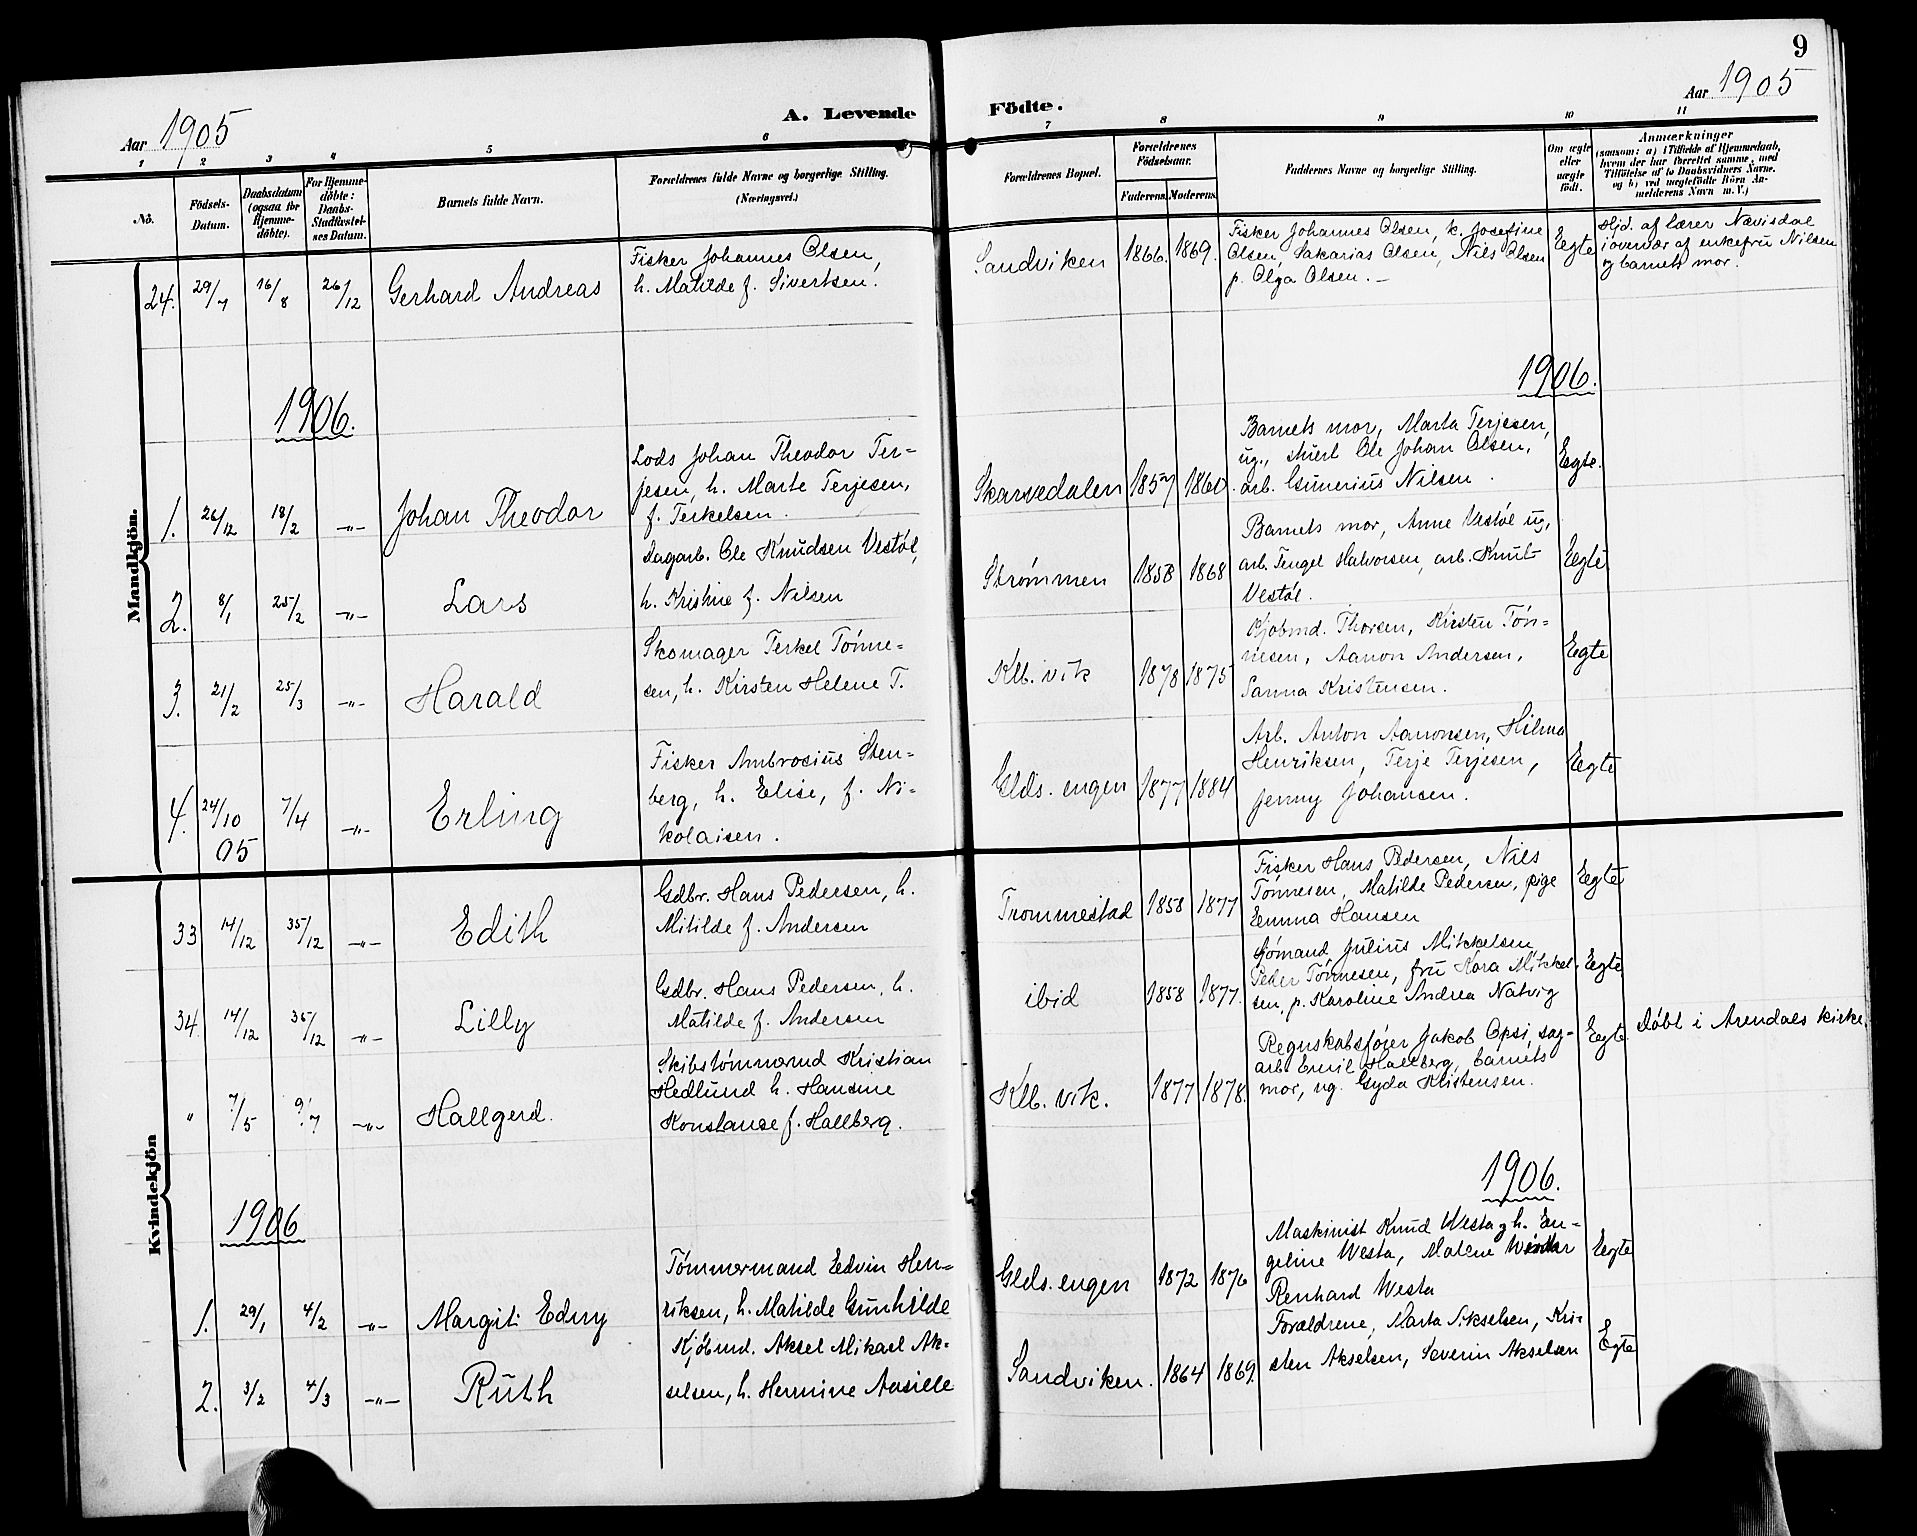 9
Aar 1905
A. Levende Födte.
Aar 1905
1 2 3 4 5 6 7 8 9 10 11
No.
Födsels-Datum.
Daabsdatum (ogsaa for Hjemme-döbte).
For Hjemme-döbte: Daabs-Stadfæstel-ses Datum.
Barnets fulde Navn.
Forældrenes fulde Navne og borgerlige Stilling.
(Næringsvei.)
Forældrenes Bopæl.
Forældrenes Födselsaar.
Faderens. Moderens.
Faddernes Navne og borgerlige Stilling.
Om ægte eller uægte födt.
Anmærkninger
(saasom: a) i Tilfælde af Hjemmedaab,
hvem der har forrettet samme, med
Tilföielse af to Daabsvidners Navne.
og b) ved uægtefödte Börn An-
melderens Navn m. V.)
Mandkjön.
24. 29/7 16/8 26/12 Gerhard Andreas
Fisker Johannes Olsen,
h. Matilde f. Sivertsen.
Sandviken 1866. 1869.
Fisker Johannes Olsen, k. Josefine
Olsen, Sakarias Olsen, Nils Olsen
p. Olga Olsen. —
Egte
Hjd. af lærer Nævisdal
i overvær af enkefru Nilsen
og barnets mor.
1906.
1906.
1. 26/12 18/2 -"- Johan Theodor
Lods Johan Theodor Ter-
jesen, h. Marte Terjesen,
f. Terkelsen.
Skarvedalen 1857 1860.
Barnets mor, Marta Terjesen,
ug., stuert Ole Johan Olsen,
arb. Gunerius Nilsen.
Egte.
2. 8/1 25/2 -"- Lars
Dagarb. Ole Knudsen Vestøl,
h. Kristine f. Nilsen
Strømmen 1858 1868
Barnets mor, Anne Vestøl ug,
arb. Tengel Halvorsen, arb. Knut
Vestøl.
Egte
3. 21/2 25/3 -"- Harald
Skomager Terkel Tønne-
sen, h. Kirsten Helene T.
Klb. vik 1878 1875
Kjøbmd. Thorsen, Kirsten Tøn-
nesen, Aanon Andersen,
Sanna Kristensen.
Egte
4. 24/10 05 7/4 -"- Erling
Fisker Ambrosius Sten-
berg, h. Elise, f. Ni-
kolaisen.
Glds. engen 1877 1884
Arb. Anton Aanonsen, Hilma
Henriksen, Terje Terjesen,
Jenny Johansen.
Egte
Kvindekjön
33 14/12 35/12 -"- Edith
Gdbr. Hans Pedersen, h.
Mitilde f. Andersen
Trommestad 1858 1877
Fisker Hans Pedersen, Nils
Tønnesen, Matilde Pedersen, pige
Emma Hansen
Egte
34. 14/12 35/12 -"- Lilly
Gdbr. Hans Pedersen, h.
Matilde f. Andersen
ibid 1858 1877.
Sjømand Julius Mikkelsen,
Peder Tønnesen, fru Kora Mikkel-
sen, p. Karoline Andrea Natvig
Egte
" 7/5 9/7 -"- Hallgerd.
Skibstømmermd Kristian
Hedlund h. Hansine
Konstanse f. Hallberg.
Klb. vik. 1877 1878.
Regnskabsfører Jakob Opsi, sag-
arb. Emil Hallberg, barnets
mor, ug. Gyda Kristensen.
Egte.
Døbt i Arendals kirke.
1906
1906.
1. 29/1 4/2 -"- Margit Edny
Tømmermand Edvin Hen-
riksen, h. Matilde Gunhilde
Glds. engen 1872 1876
Maskinist Knud Westa og h. En-
geline Westa, Malene
Renhard Westa
Egte
2. 3/2 4/3 -"- Ruth
Kjøbmd. Aksel Mikael Ak-
selsen, h. Hermine Aasille
Sandviken. 1864 1869.
Forældrene, Marta Akselsen, Kri-
sten Akselsen, Severin Akselsen
Egte